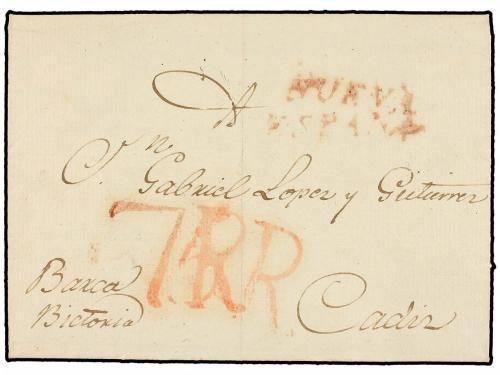 A
NUEVA
ESPAÑA
Dn.
Gabriel Lopez y Gutierrez
7RR
Barca
Victoria
Cadiz